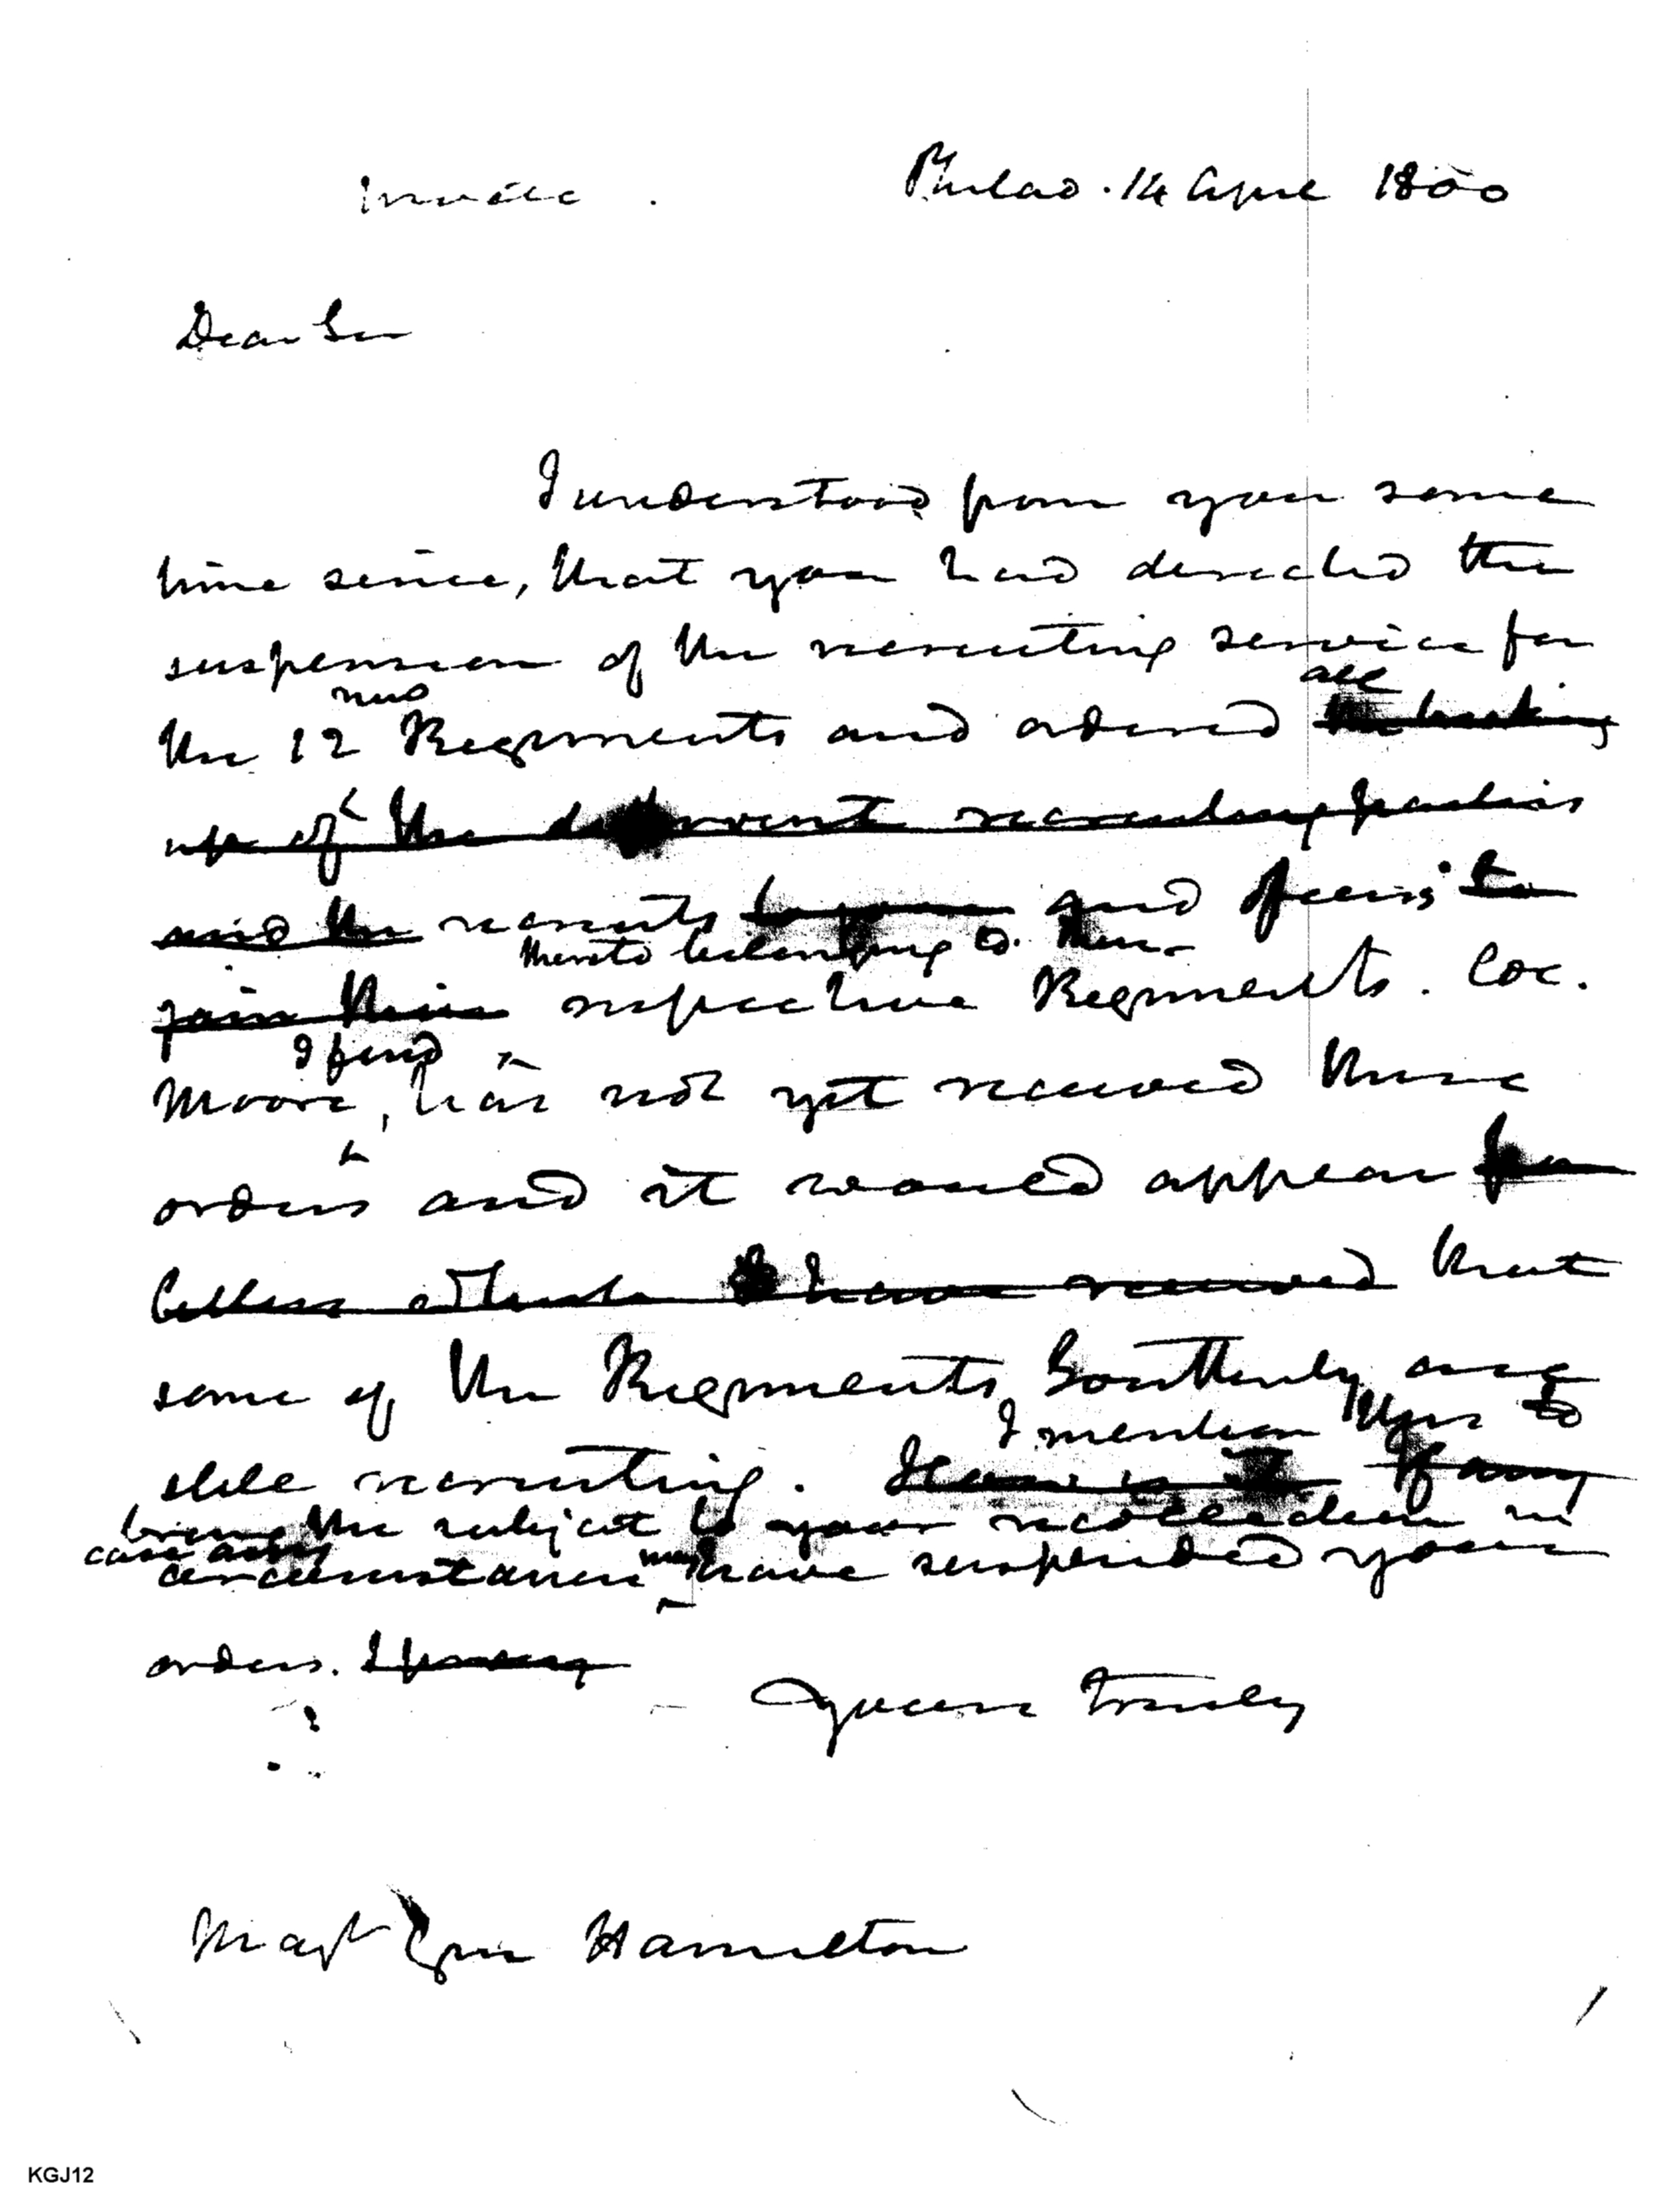 Private.
Philad. 14 April 1800
Dear Sir
I understood from you some
time since, that you had directed the
suspension of the recruiting service for
new all
the 12 Regiments and ordered the breaking
up of the different recruiting parties
and the recruits to join and officers to
thereto belonging to their
join their respective Regiments. Col.
I find
Moore, has not yet received these
orders and it would appear from
letters which I have received that
some of the Regiments Southerly are
I mention this to
still recruiting. How is it If any
bring the subject to your recollection in
case any may
circumstances have suspended your
orders.
Yours truly
Majr Gen Hamilton
KGJ12